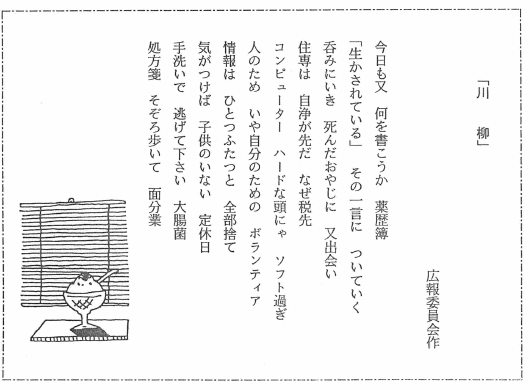 「川　柳」
広報委員会作
今日も又　何を書こうか　薬歴簿
「生かされている」　その一言に　ついていく
呑みにいき　死んだおやじに　又出会い
住専は　自浄が先だ　なぜ税先
コンピューター　ハードな頭にゃ　ソフト過ぎ
人のため　いや自分のための　ボランティア
情報は　ひとつふたつと　全部捨て
気がつけば　子供のいない　定休日
手洗いで　逃げて下さい　大腸菌
処方箋　そぞろ歩いて　面分業